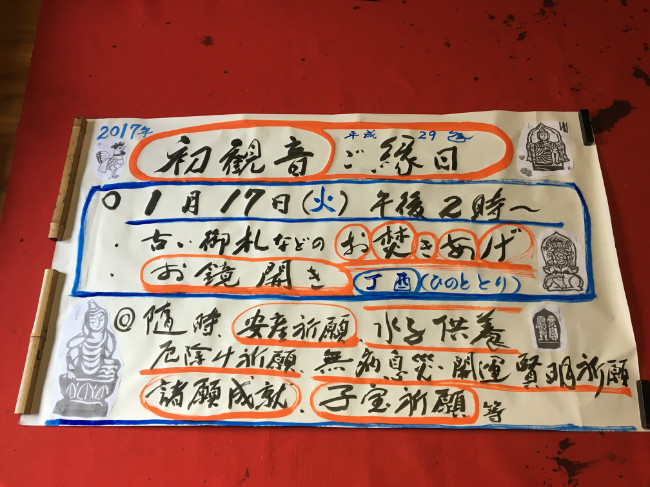 2017年 平成29年
初観音ご縁日
○1月17日(火)午後2時〜
・古い御札などのお焚きあげ
・お鏡開き 丁酉(ひのととり)
◎随時、安産祈願 水子供養
厄除け祈願、無病息災・開運賢明祈願
諸願成就、子宝祈願 等